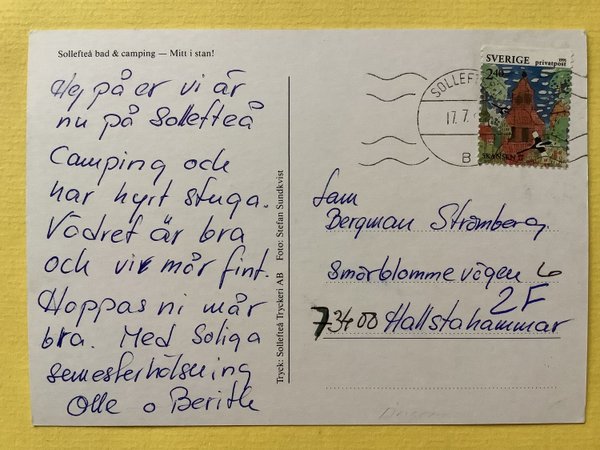 Sollefteå bad & camping — Mitt i stan!
Hej på er vi är
nu på Sollefteå
Camping och
har hyrt stuga.
Vädret är bra
och vi mår fint.
Hoppas ni mår
bra. Med Soliga
semesterhälsning
Olle o Berith
Tryck: Sollefteå Tryckeri AB Foto: Stefan Sundkvist
SVERIGE
privatpost
2.40
SKANSEN
17.7
B
fam
Bergman Strömberg.
Smörblommevägen 6
2F
73400 Hallstahammar